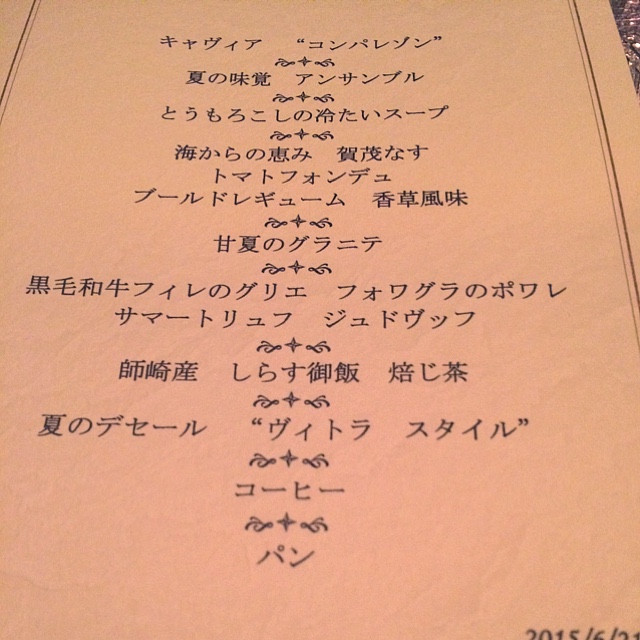 キャヴィア　“コンパレゾン”
夏の味覚　アンサンブル
とうもろこしの冷たいスープ
海からの恵み　賀茂なす
トマトフォンデュ
ブールドレギューム　香草風味
甘夏のグラニテ
黒毛和牛フィレのグリエ　フォワグラのポワレ
サマートリュフ　ジュドヴッフ
師崎産　しらす御飯　焙じ茶
夏のデセール　“ヴィトラ　スタイル”
コーヒー
パン
2015/6/21